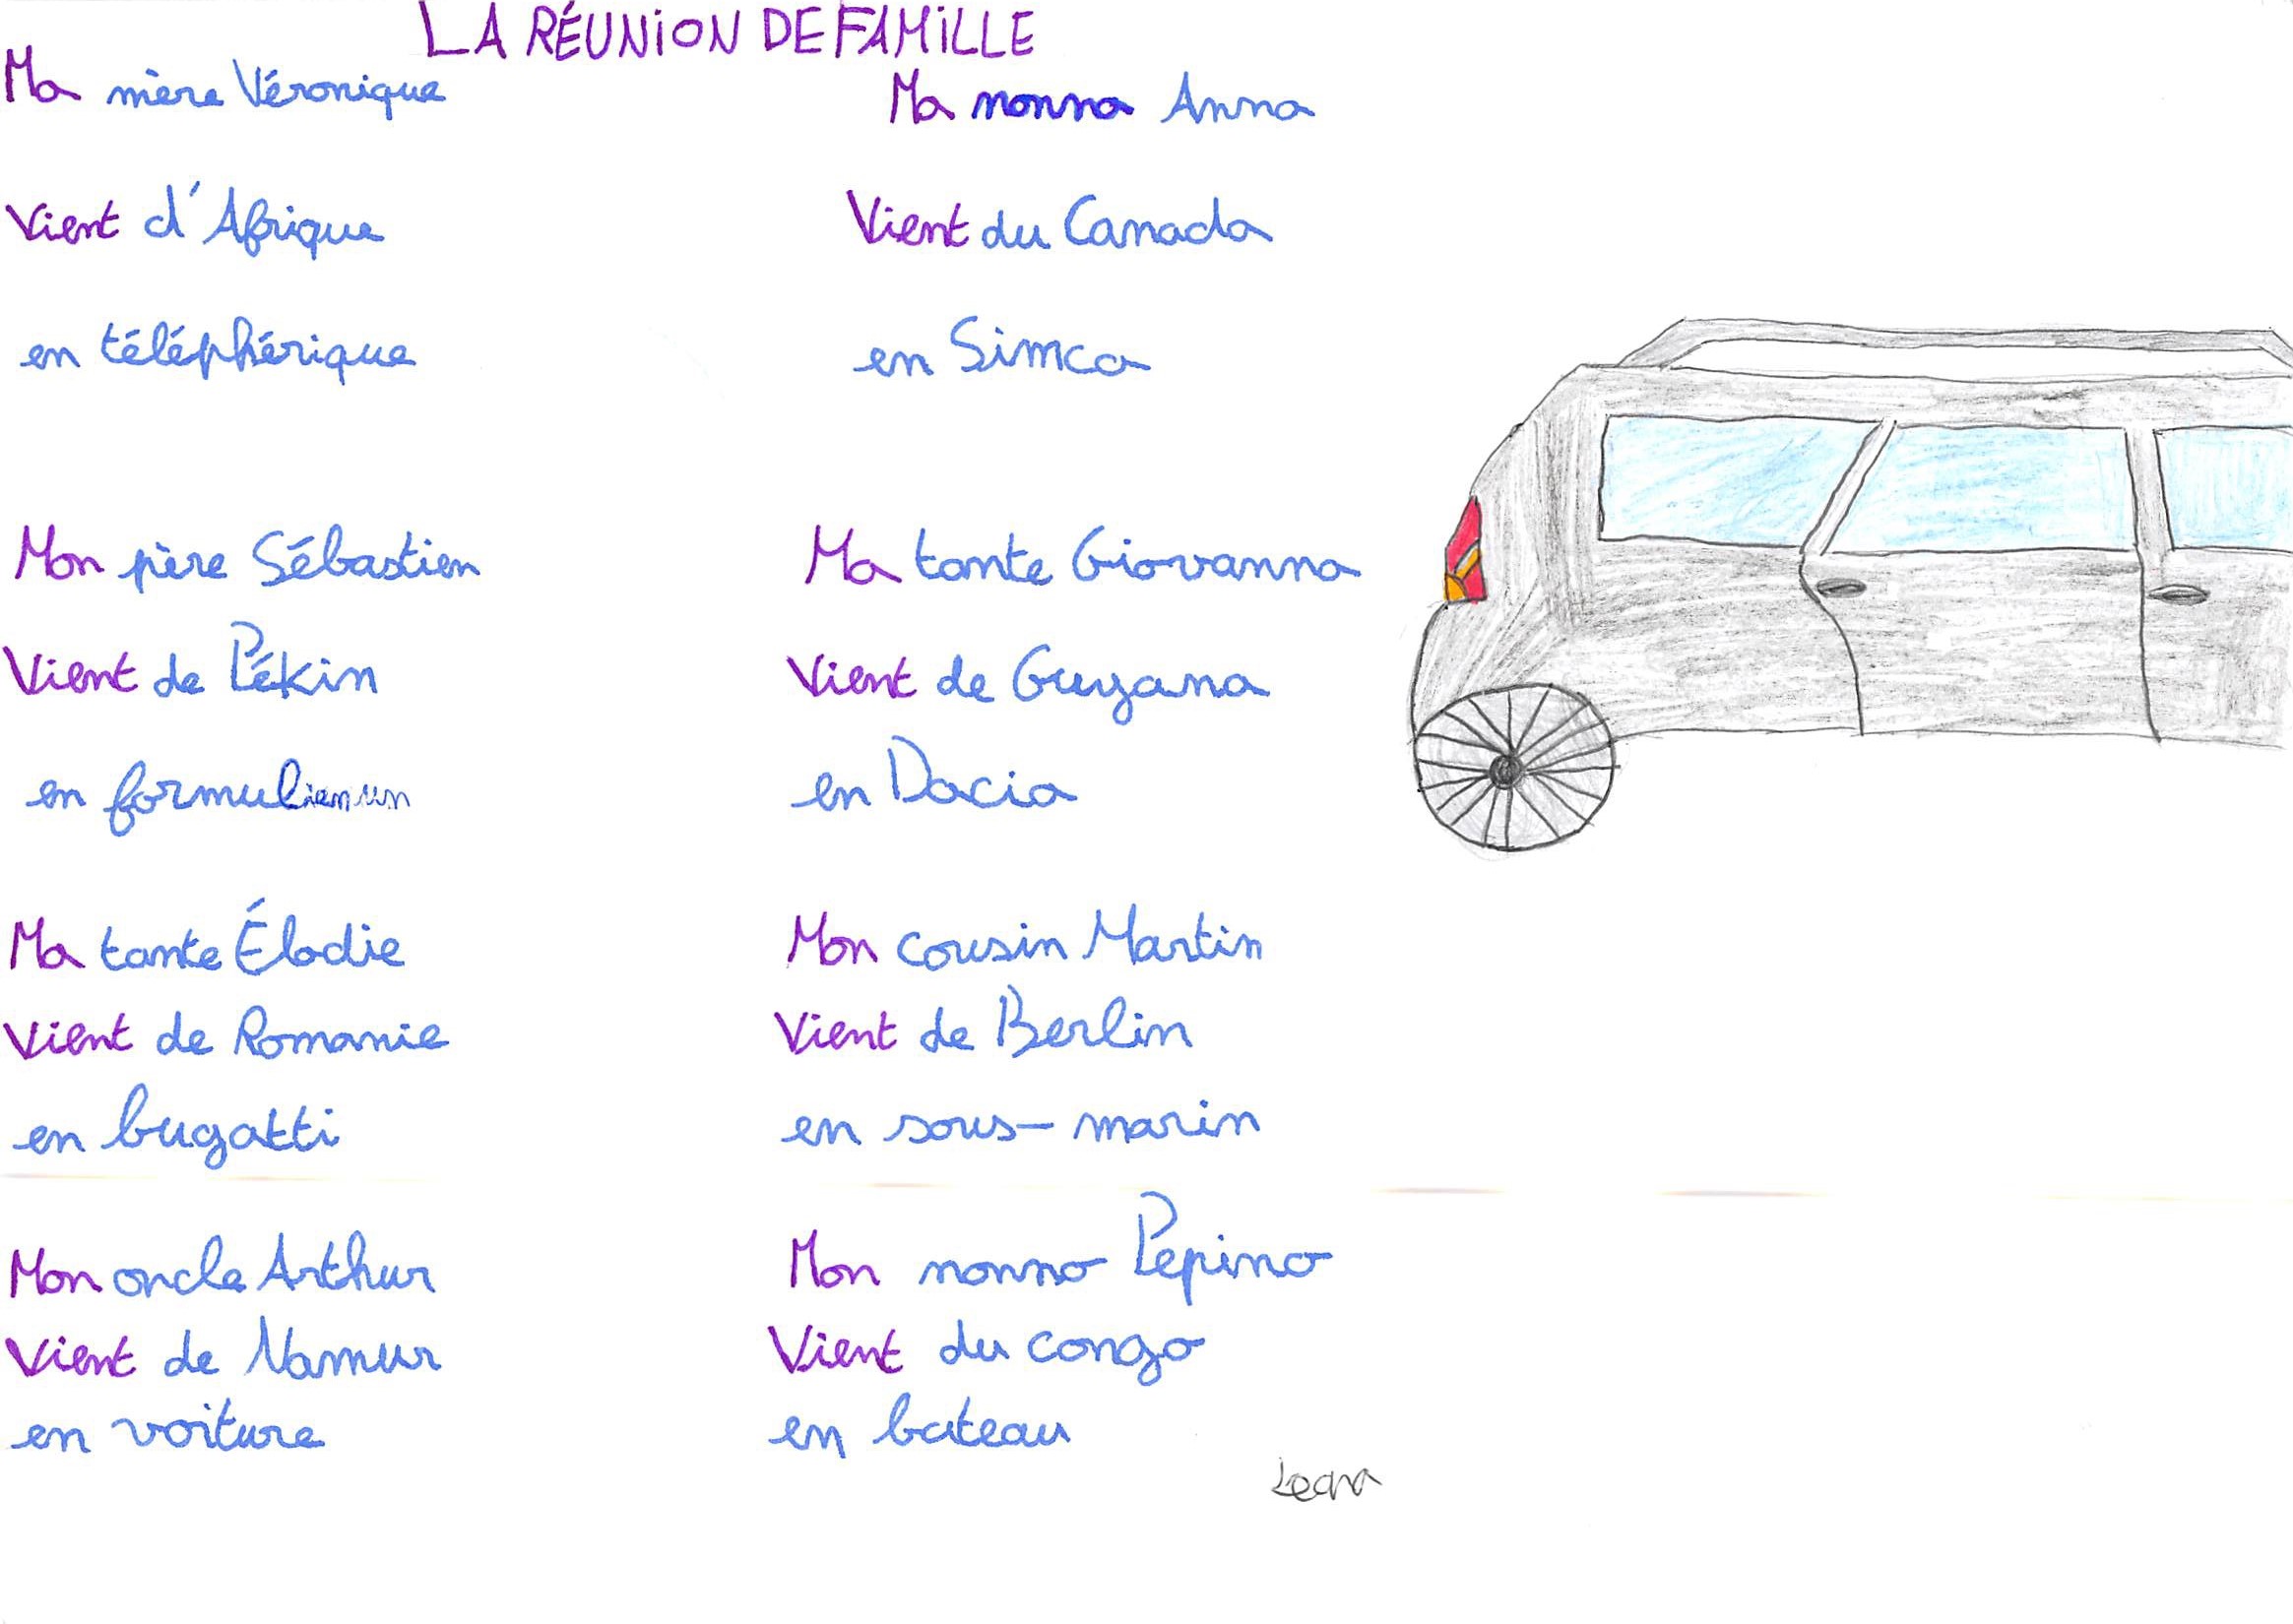 LA RÉUNION DE FAMILLE
Ma mère Véronique
Vient d'Afrique
en téléphérique
Mon père Sébastien
Vient de Pékin
en formul
Ma tante Élodie
Vient de Romanie
en bugatti
Mon oncle Arthur
Vient de Namur
en voiture
Ma nonna Anna
Vient du Canada
en Simca
Ma tante Giovanna
Vient de Guyana
en Dacia
Mon cousin Martin
Vient de Berlin
en sous-marin
Mon nonno Pepino
Vient du congo
en bateau